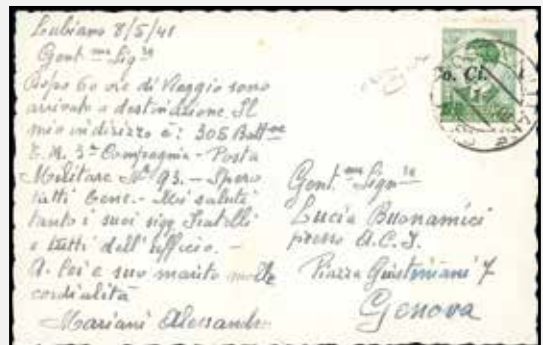 Lubiano 8/5/41
Gent.ma Sig.ra
dopo 60 ore di Viaggio sono
arrivato a destinazione. Il
mio indirizzo è: 306 Batt.ne
3a Compagnia - Posta
Militare No 93. - Spero
tutti bene. - Mi saluti
tanto i suoi sigg Fratelli
e tutti dell'ufficio. -
A Lei e suo marito molte
cordialità
Mariani Alessandro
Co. Ci.
1
Gent.ma Sign.ra
Lucia Buonamici
presso A.C.I.
Piazza Giustiniani 7
Genova